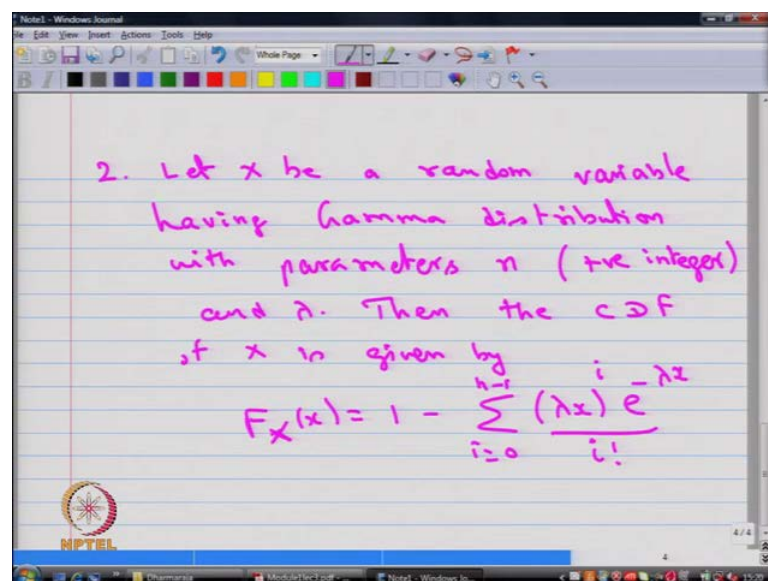 Note1 - Windows Journal
File Edit View Insert Actions Tools Help
Whole Page
B I
2. Let X be a random variable
having Gamma distribution
with parameters n (+ve integer)
and λ. Then the CDF
of X is given by
F_X(x) = 1 - Σ_{i=0}^{n-1} (λx)^i e^{-λx} / i!
NPTEL
4/4
4
Dharmaraja
Module1lec1.pdf - ...
Note1 - Windows Jo...